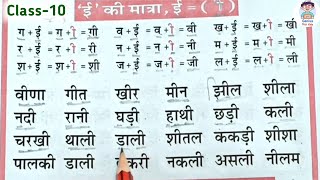 Class-10
'ई' की मात्रा, ई = (ी)
ग + ई = ग+ी = गी व + ई = व+ी = वी ख+ई = ख+ी = खी
र + ई = र+ी = री न + ई = न+ी = नी म + ई = म+ी = मी
श + ई = श+ी = शी ज + ई = ज+ी = जी ल + ई = ल+ी = ली
वीणा गीत खीर मीन झील शीला
नदी रानी घड़ी हाथी छड़ी कली
चरखी थाली डाली शीतल ककड़ी शीशा
पालकी डाली नकली असली नीलम